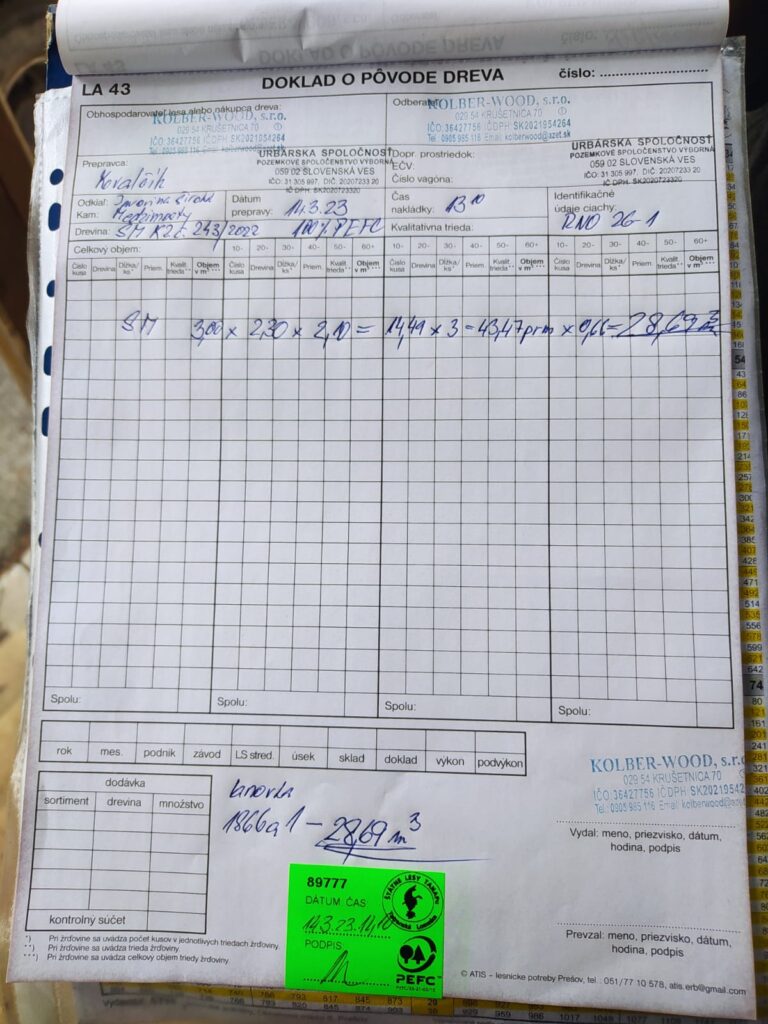 LA 43
DOKLAD O PÔVODE DREVA
číslo:
Obhospodarovateľ lesa alebo nákupca dreva:
KOLBER-WOOD, s.r.o.
029 54 KRUŠETNICA 70
IČO: 36427756 IČDPH: SK2021954264
Tel: 0905 985 116 Email: kolberwood@azet.sk
Odberateľ
KOLBER-WOOD, s.r.o.
029 54 KRUŠETNICA 70
IČO: 36427756 IČDPH: SK2021954264
Tel: 0905 985 116 Email: kolberwood@azet.sk
Prepravca:
Kovalčik
URBÁRSKA SPOLOČNOSŤ
POZEMKOVÉ SPOLOČENSTVO VÝBORNÁ
059 02 SLOVENSKÁ VES
IČO: 31 305 997, DIČ: 20207233 20
IČ DPH: SK2020723320
Dopr. prostriedok:
EČV:
Číslo vagóna:
URBÁRSKA SPOLOČNOSŤ
POZEMKOVÉ SPOLOČENSTVO VÝBORNÁ
059 02 SLOVENSKÁ VES
IČO: 31 305 997, DIČ: 20207233 20
IČ DPH: SK2020723320
Odkiaľ: Javorina Široká
Kam: Medzimosty
Dátum prepravy: 14.3.23
Čas nakládky: 13 10
Identifikačné údaje ciachy: RNO 26-1
Drevina: SM KZč. 243/2022 100% PEFC
Kvalitatívna trieda:
Celkový objem:
10- 20- 30- 40- 50- 60+
10- 20- 30- 40- 50- 60+
10- 20- 30- 40- 50- 60+
Číslo kusa Drevina Dĺžka/ks* Priem. Kvalit. trieda** Objem v m³***
Číslo kusa Drevina Dĺžka/ks* Priem. Kvalit. trieda** Objem v m³***
Číslo kusa Drevina Dĺžka/ks* Priem. Kvalit. trieda** Objem v m³***
Číslo kusa Drevina Dĺžka/ks* Priem. Kvalit. trieda** Objem v m³***
SM 3,00 x 2,30 x 2,10 = 14,49 x 3 = 43,47 prm x 0,66 = 28,69 m³
Spolu: Spolu: Spolu: Spolu:
rok mes. podnik závod LS stred. úsek sklad doklad výkon podvýkon
dodávka
sortiment drevina množstvo
kontrolný súčet
lanovka
1866a1 - 28,69 m³
KOLBER-WOOD, s.r.o.
029 54 KRUŠETNICA 70
IČO: 36427756 IČDPH: SK20219542
Tel: 0905 985 116 Email: kolberwood@azet
Vydal: meno, priezvisko, dátum,
hodina, podpis
89777
DÁTUM ČAS
14.3.23. 14,10
PODPIS
ŠTÁTNE LESY TANAPu
Tatranská Lomnica
PEFC
Prevzal: meno, priezvisko, dátum,
hodina, podpis
*) Pri žrďovine sa uvádza počet kusov v jednotlivých triedach žrďoviny.
**) Pri žrďovine sa uvádza trieda žrďoviny.
***) Pri žrďovine sa uvádza celkový objem triedy žrďoviny.
© ATIS - lesnícke potreby Prešov, tel.: 051/77 10 578, atis.erb@gmail.com